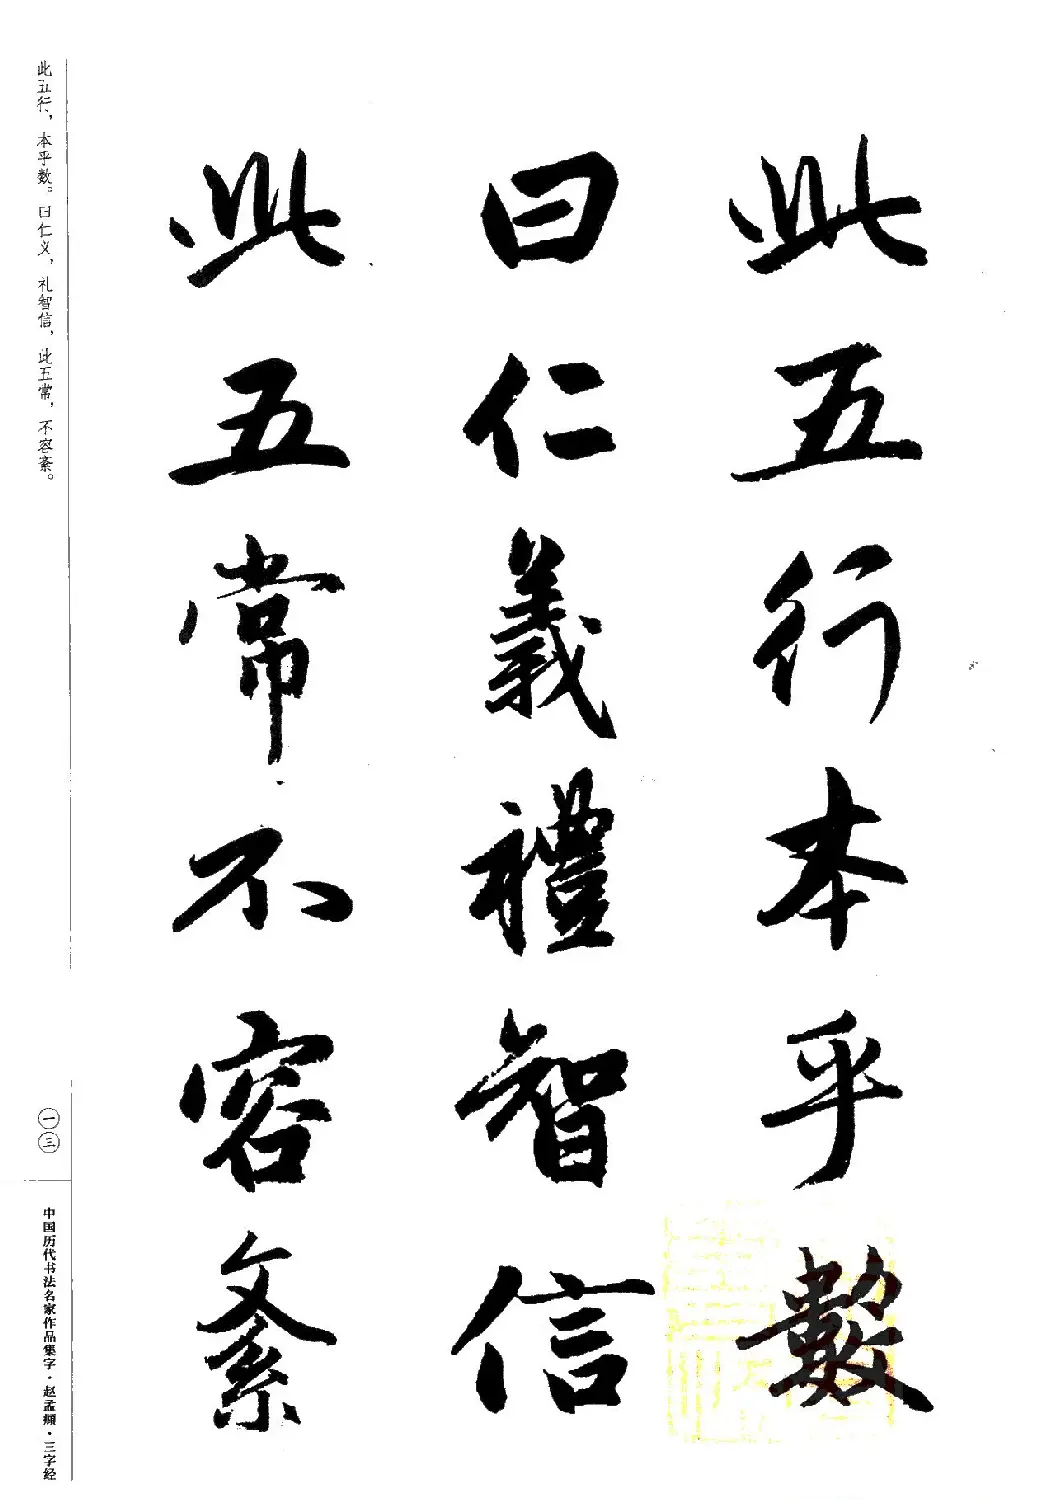 此五行本乎數
曰仁義禮智信
此五常不容紊
此五行，本乎数。曰仁义，礼智信，此五常，不容紊。
一三
中国历代书法名家作品集字·赵孟頫·三字经